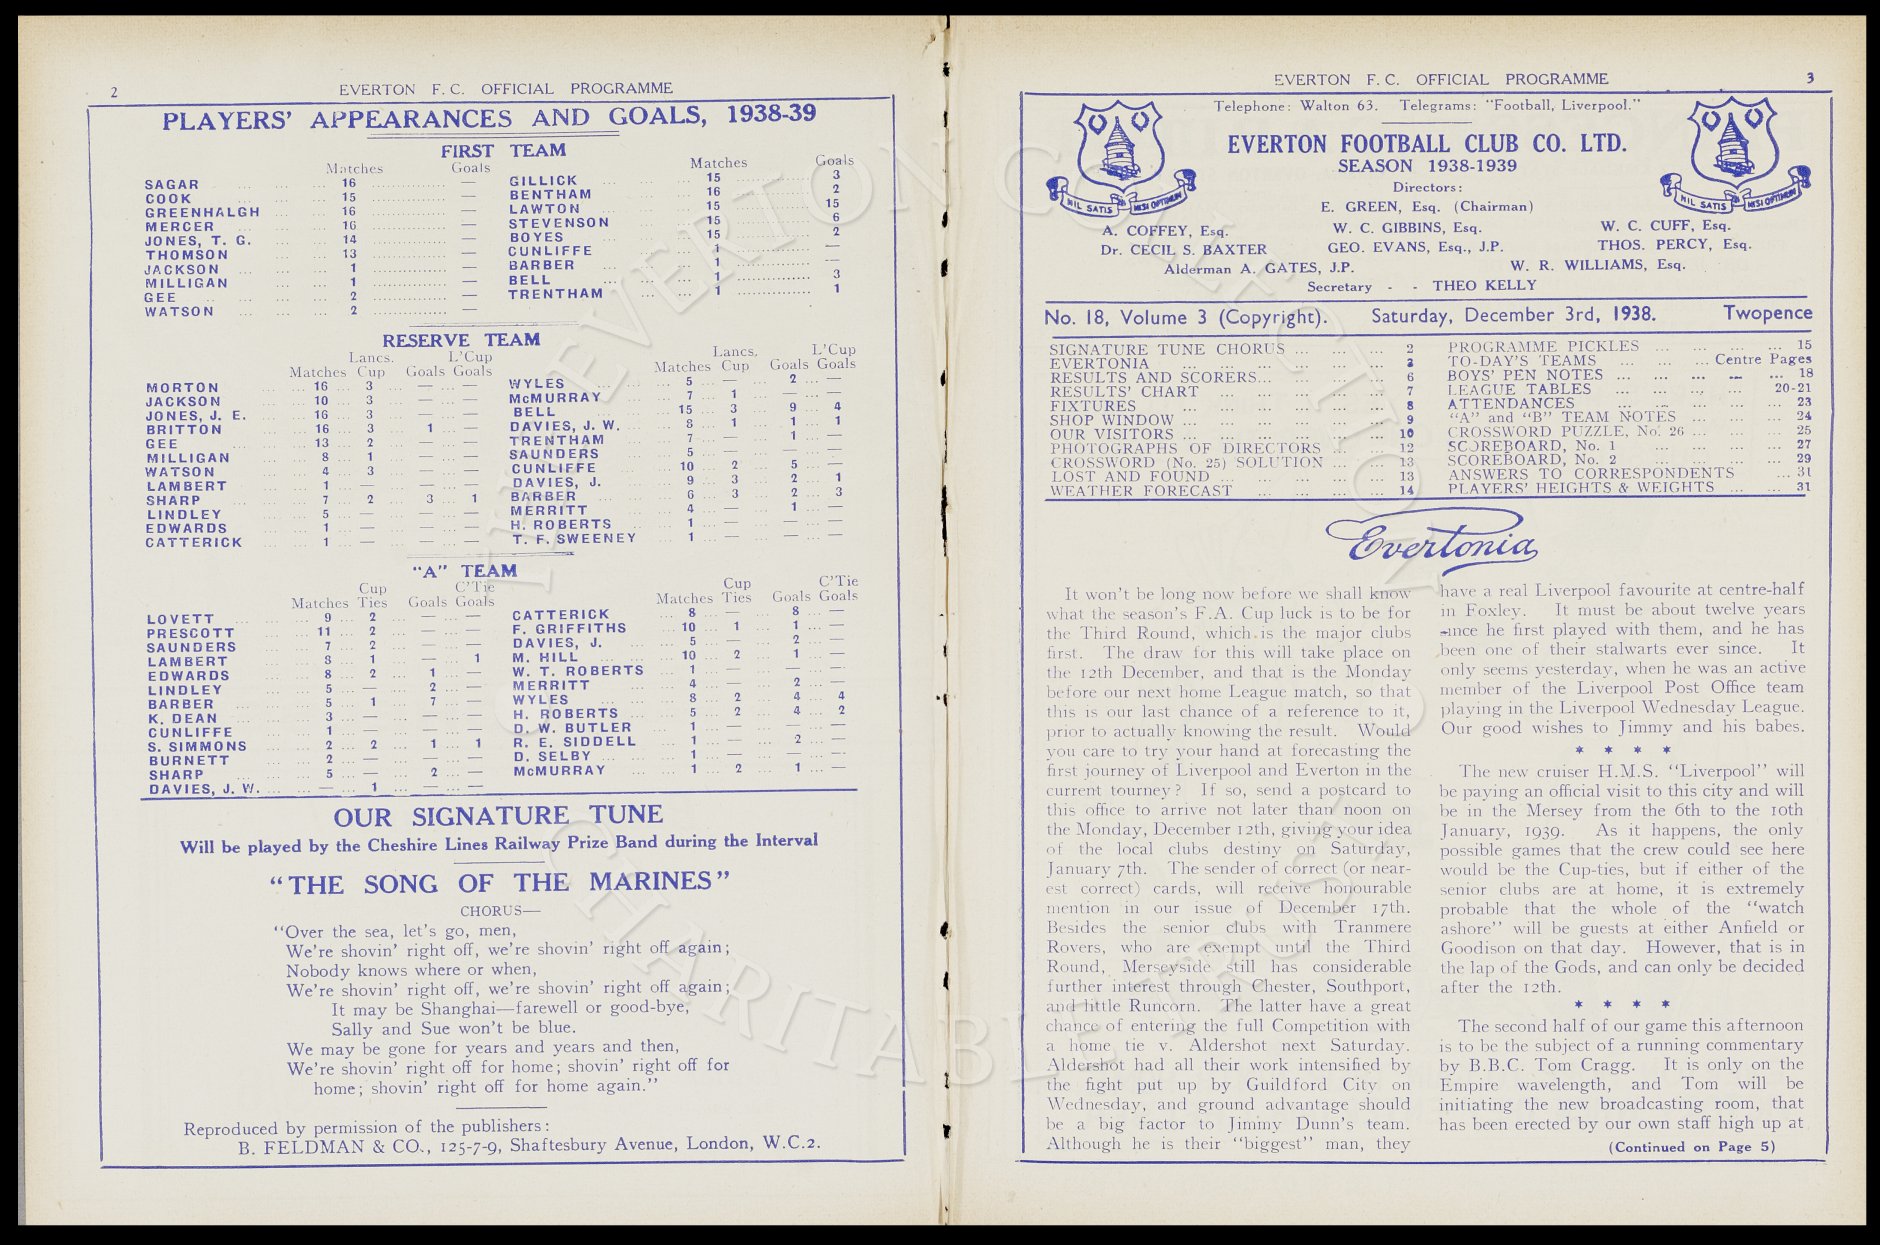 2
EVERTON F. C. OFFICIAL PROGRAMME
PLAYERS' APPEARANCES AND GOALS, 1938-39
FIRST TEAM
Matches Goals
SAGAR ... ... ... 16 ... —
COOK ... ... ... 15 ... —
GREENHALGH ... ... 16 ... —
MERCER ... ... ... 16 ... —
JONES, T. G. ... ... 14 ... —
THOMSON ... ... 13 ... —
JACKSON ... ... ... 1 ... —
MILLIGAN ... ... 1 ... —
GEE ... ... ... 2 ... —
WATSON ... ... ... 2 ... —
Matches Goals
GILLICK ... ... 15 ... 3
BENTHAM ... ... 16 ... 2
LAWTON ... ... 15 ... 15
STEVENSON ... ... 15 ... 6
BOYES ... ... 15 ... 2
CUNLIFFE ... ... 1 ... —
BARBER ... ... 1 ... —
BELL ... ... 1 ... 3
TRENTHAM ... ... 1 ... 1
RESERVE TEAM
Lancs. L'Cup
Matches Cup Goals Goals
MORTON ... ... 16 ... 3 ... — ... —
JACKSON ... ... 10 ... 3 ... — ... —
JONES, J. E. ... ... 16 ... 3 ... — ... —
BRITTON ... ... 16 ... 3 ... 1 ... —
GEE ... ... 13 ... 2 ... — ... —
MILLIGAN ... ... 8 ... 1 ... — ... —
WATSON ... ... 4 ... 3 ... — ... —
LAMBERT ... ... 1 ... — ... — ... —
SHARP ... ... 7 ... 2 ... 3 ... 1
LINDLEY ... ... 5 ... — ... — ... —
EDWARDS ... ... 1 ... — ... — ... —
CATTERICK ... ... 1 ... — ... — ... —
Lancs. L'Cup
Matches Cup Goals Goals
WYLES ... ... 5 ... — ... 2 ... —
McMURRAY ... ... 7 ... 1 ... — ... —
BELL ... ... 15 ... 3 ... 9 ... 4
DAVIES, J. W. ... ... 8 ... 1 ... 1 ... 1
TRENTHAM ... ... 7 ... — ... 1 ... —
SAUNDERS ... ... 5 ... — ... — ... —
CUNLIFFE ... ... 10 ... 2 ... 5 ... —
DAVIES, J. ... ... 9 ... 3 ... 2 ... 1
BARBER ... ... 6 ... 3 ... 2 ... 3
MERRITT ... ... 4 ... — ... 1 ... —
H. ROBERTS ... ... 1 ... — ... — ... —
T. F. SWEENEY ... 1 ... — ... — ... —
"A" TEAM
Cup C'Tie
Matches Ties Goals Goals
LOVETT ... ... 9 ... 2 ... — ... —
PRESCOTT ... ... 11 ... 2 ... — ... —
SAUNDERS ... ... 7 ... 2 ... — ... —
LAMBERT ... ... 8 ... 1 ... — 1
EDWARDS ... ... 8 ... 2 ... 1 ... —
LINDLEY ... ... 5 ... — ... 2 ... —
BARBER ... ... 5 ... 1 ... 7 ... —
K. DEAN ... ... 3 ... — ... — ... —
CUNLIFFE ... ... 1 ... — ... — ... —
S. SIMMONS ... ... 2 ... 2 ... 1 ... 1
BURNETT ... ... 2 ... — ... — ... —
SHARP ... ... 5 ... — ... 2 ... —
DAVIES, J. W. ... ... — ... 1 ... — ... —
Cup C'Tie
Matches Ties Goals Goals
CATTERICK ... 8 ... — ... 8 ... —
F. GRIFFITHS ... 10 ... 1 ... 1 ... —
DAVIES, J. ... ... 5 ... — ... 2 ... —
M. HILL ... ... 10 ... 2 ... 1 ... —
W. T. ROBERTS ... 1 ... — ... — ... —
MERRITT ... ... 4 ... — ... 2 ... —
WYLES ... ... 8 ... 2 ... 4 ... 4
H. ROBERTS ... ... 5 ... 2 ... 4 ... 2
D. W. BUTLER ... 1 ... — ... — ... —
R. E. SIDDELL ... 1 ... — ... 2 ... —
D. SELBY ... ... 1 ... — ... — ... —
McMURRAY ... ... 1 ... 2 ... 1 ... —
OUR SIGNATURE TUNE
Will be played by the Cheshire Lines Railway Prize Band during the Interval
"THE SONG OF THE MARINES"
CHORUS—
"Over the sea, let's go, men,
We're shovin' right off, we're shovin' right off again;
Nobody knows where or when,
We're shovin' right off, we're shovin' right off again;
It may be Shanghai—farewell or good-bye,
Sally and Sue won't be blue.
We may be gone for years and years and then,
We're shovin' right off for home; shovin' right off for
home; shovin' right off for home again."
Reproduced by permission of the publishers:
B. FELDMAN & CO., 125-7-9, Shaftesbury Avenue, London, W.C.2.
EVERTON F. C. OFFICIAL PROGRAMME
3
Telephone: Walton 63. Telegrams: "Football, Liverpool."
EVERTON FOOTBALL CLUB CO. LTD.
SEASON 1938-1939
NIL SATIS NISI OPTIMUM
NIL SATIS NISI OPTIMUM
Directors:
E. GREEN, Esq. (Chairman)
A. COFFEY, Esq. W. C. GIBBINS, Esq. W. C. CUFF, Esq.
Dr. CECIL S. BAXTER GEO. EVANS, Esq., J.P. THOS. PERCY, Esq.
Alderman A. GATES, J.P. W. R. WILLIAMS, Esq.
Secretary - - THEO KELLY
No. 18, Volume 3 (Copyright). Saturday, December 3rd, 1938. Twopence
SIGNATURE TUNE CHORUS ... ... ... 2
EVERTONIA ... ... ... ... ... 3
RESULTS AND SCORERS... ... ... ... 6
RESULTS' CHART ... ... ... ... ... 7
FIXTURES ... ... ... ... ... 8
SHOP WINDOW ... ... ... ... ... 9
OUR VISITORS ... ... ... ... ... 10
PHOTOGRAPHS OF DIRECTORS ... ... 12
CROSSWORD (No. 25) SOLUTION ... ... 13
LOST AND FOUND ... ... ... ... 13
WEATHER FORECAST ... ... ... ... 14
PROGRAMME PICKLES ... ... ... ... 15
TO-DAY'S TEAMS ... ... ... Centre Pages
BOYS' PEN NOTES ... ... ... ... ... 18
LEAGUE TABLES ... ... ... ... 20-21
ATTENDANCES ... ... ... ... 23
"A" and "B" TEAM NOTES ... ... ... 24
CROSSWORD PUZZLE, No. 26 ... ... ... 25
SCOREBOARD, No. 1 ... ... ... ... 27
SCOREBOARD, No. 2 ... ... ... ... 29
ANSWERS TO CORRESPONDENTS ... 31
PLAYERS' HEIGHTS & WEIGHTS ... ... 31
Evertonia
It won't be long now before we shall know
what the season's F.A. Cup luck is to be for
the Third Round, which is the major clubs
first. The draw for this will take place on
the 12th December, and that is the Monday
before our next home League match, so that
this is our last chance of a reference to it,
prior to actually knowing the result. Would
you care to try your hand at forecasting the
first journey of Liverpool and Everton in the
current tourney? If so, send a postcard to
this office to arrive not later than noon on
the Monday, December 12th, giving your idea
of the local clubs destiny on Saturday,
January 7th. The sender of correct (or near-
est correct) cards, will receive honourable
mention in our issue of December 17th.
Besides the senior clubs with Tranmere
Rovers, who are exempt until the Third
Round, Merseyside still has considerable
further interest through Chester, Southport,
and little Runcorn. The latter have a great
chance of entering the full Competition with
a home tie v. Aldershot next Saturday.
Aldershot had all their work intensified by
the fight put up by Guildford City on
Wednesday, and ground advantage should
be a big factor to Jimmy Dunn's team.
Although he is their "biggest" man, they
have a real Liverpool favourite at centre-half
in Foxley. It must be about twelve years
since he first played with them, and he has
been one of their stalwarts ever since. It
only seems yesterday, when he was an active
member of the Liverpool Post Office team
playing in the Liverpool Wednesday League.
Our good wishes to Jimmy and his babes.
* * * *
The new cruiser H.M.S. "Liverpool" will
be paying an official visit to this city and will
be in the Mersey from the 6th to the 10th
January, 1939. As it happens, the only
possible games that the crew could see here
would be the Cup-ties, but if either of the
senior clubs are at home, it is extremely
probable that the whole of the "watch
ashore" will be guests at either Anfield or
Goodison on that day. However, that is in
the lap of the Gods, and can only be decided
after the 12th.
* * * *
The second half of our game this afternoon
is to be the subject of a running commentary
by B.B.C. Tom Cragg. It is only on the
Empire wavelength, and Tom will be
initiating the new broadcasting room, that
has been erected by our own staff high up at
(Continued on Page 5)
THE EVERTON COLLECTION
CHARITABLE TRUST